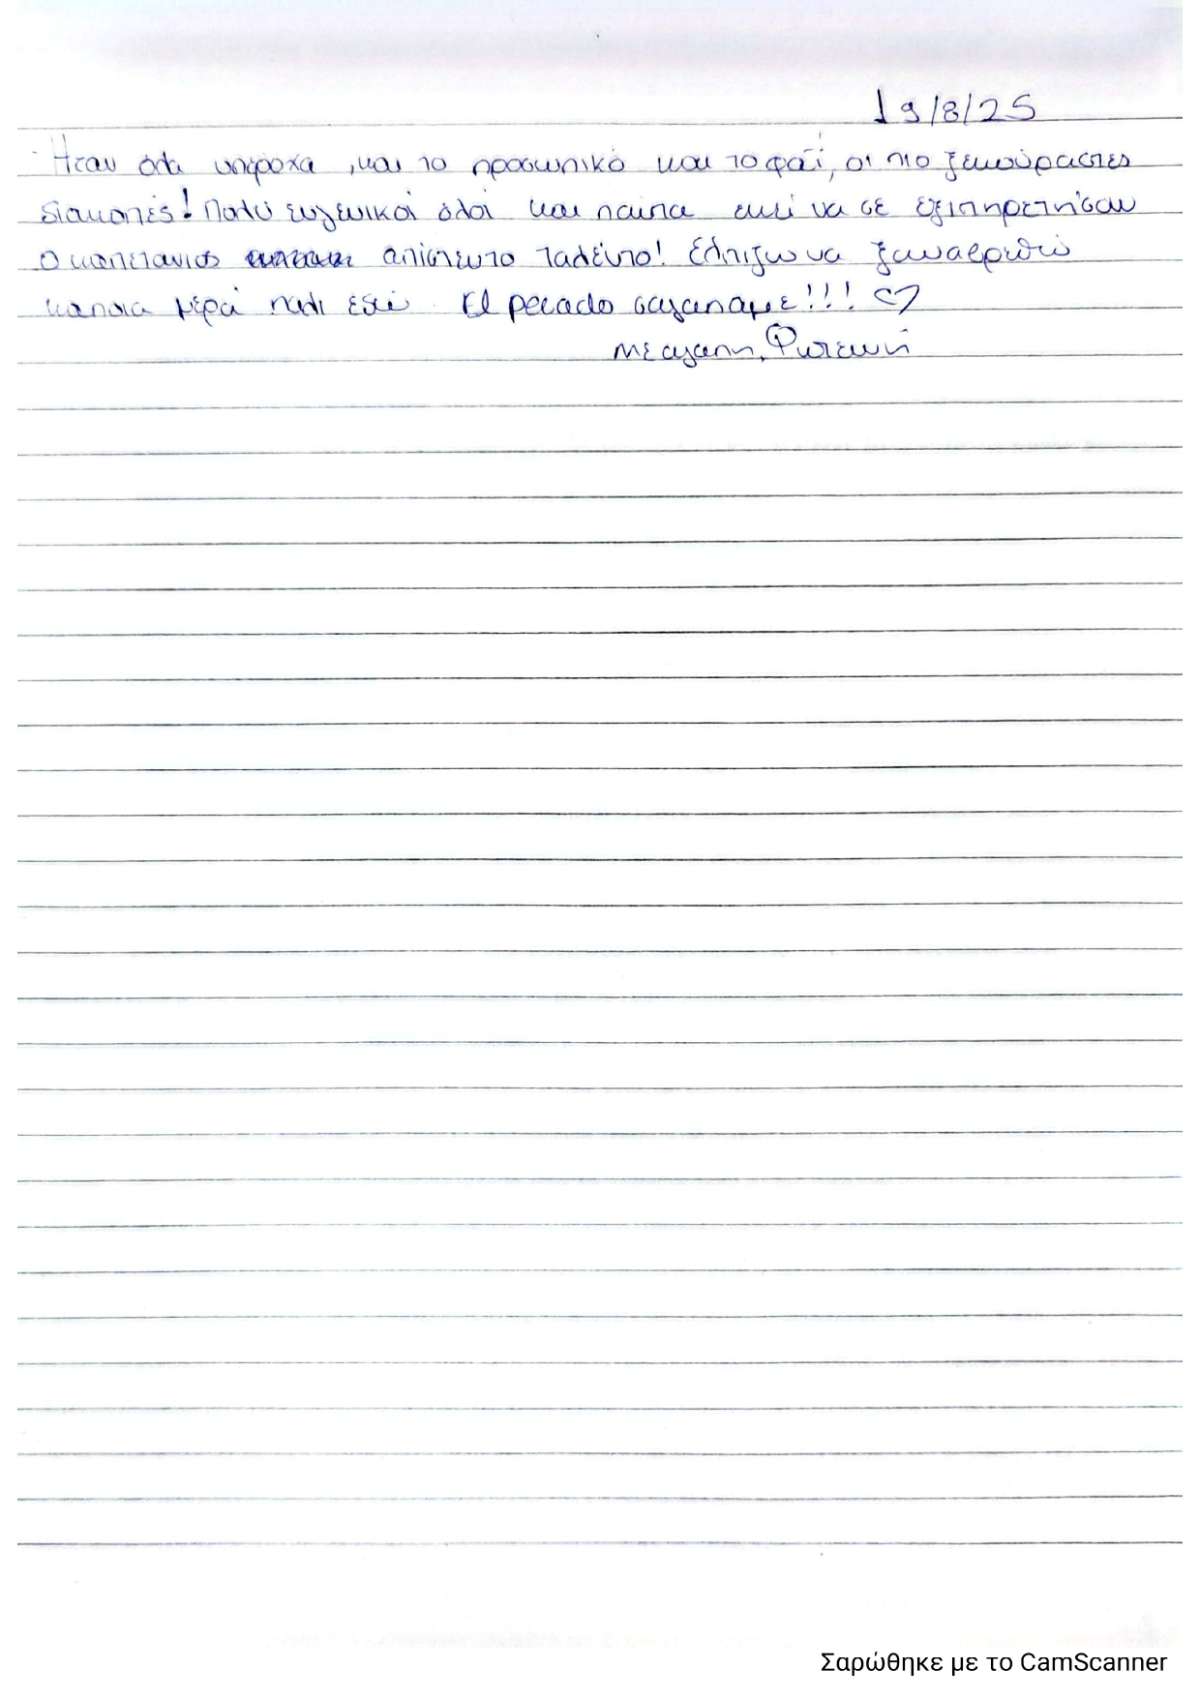 19/8/25
Ηταν όλα υπέροχα, και το προσωπικό και το φαΐ, οι πιο ξεκούραστες
διακοπές! Πολύ ευγενικοί όλοι και παντα εκεί να σε εξυπηρετήσουν
Ο καπετανιος απίστευτο ταλέντο! Ελπιζω να ξαναερθω
καποια μέρα παλι εδώ El pecado σαγαπαμε!!! ♡
Με αγαπη, Φωτεινή
Σαρώθηκε με το CamScanner